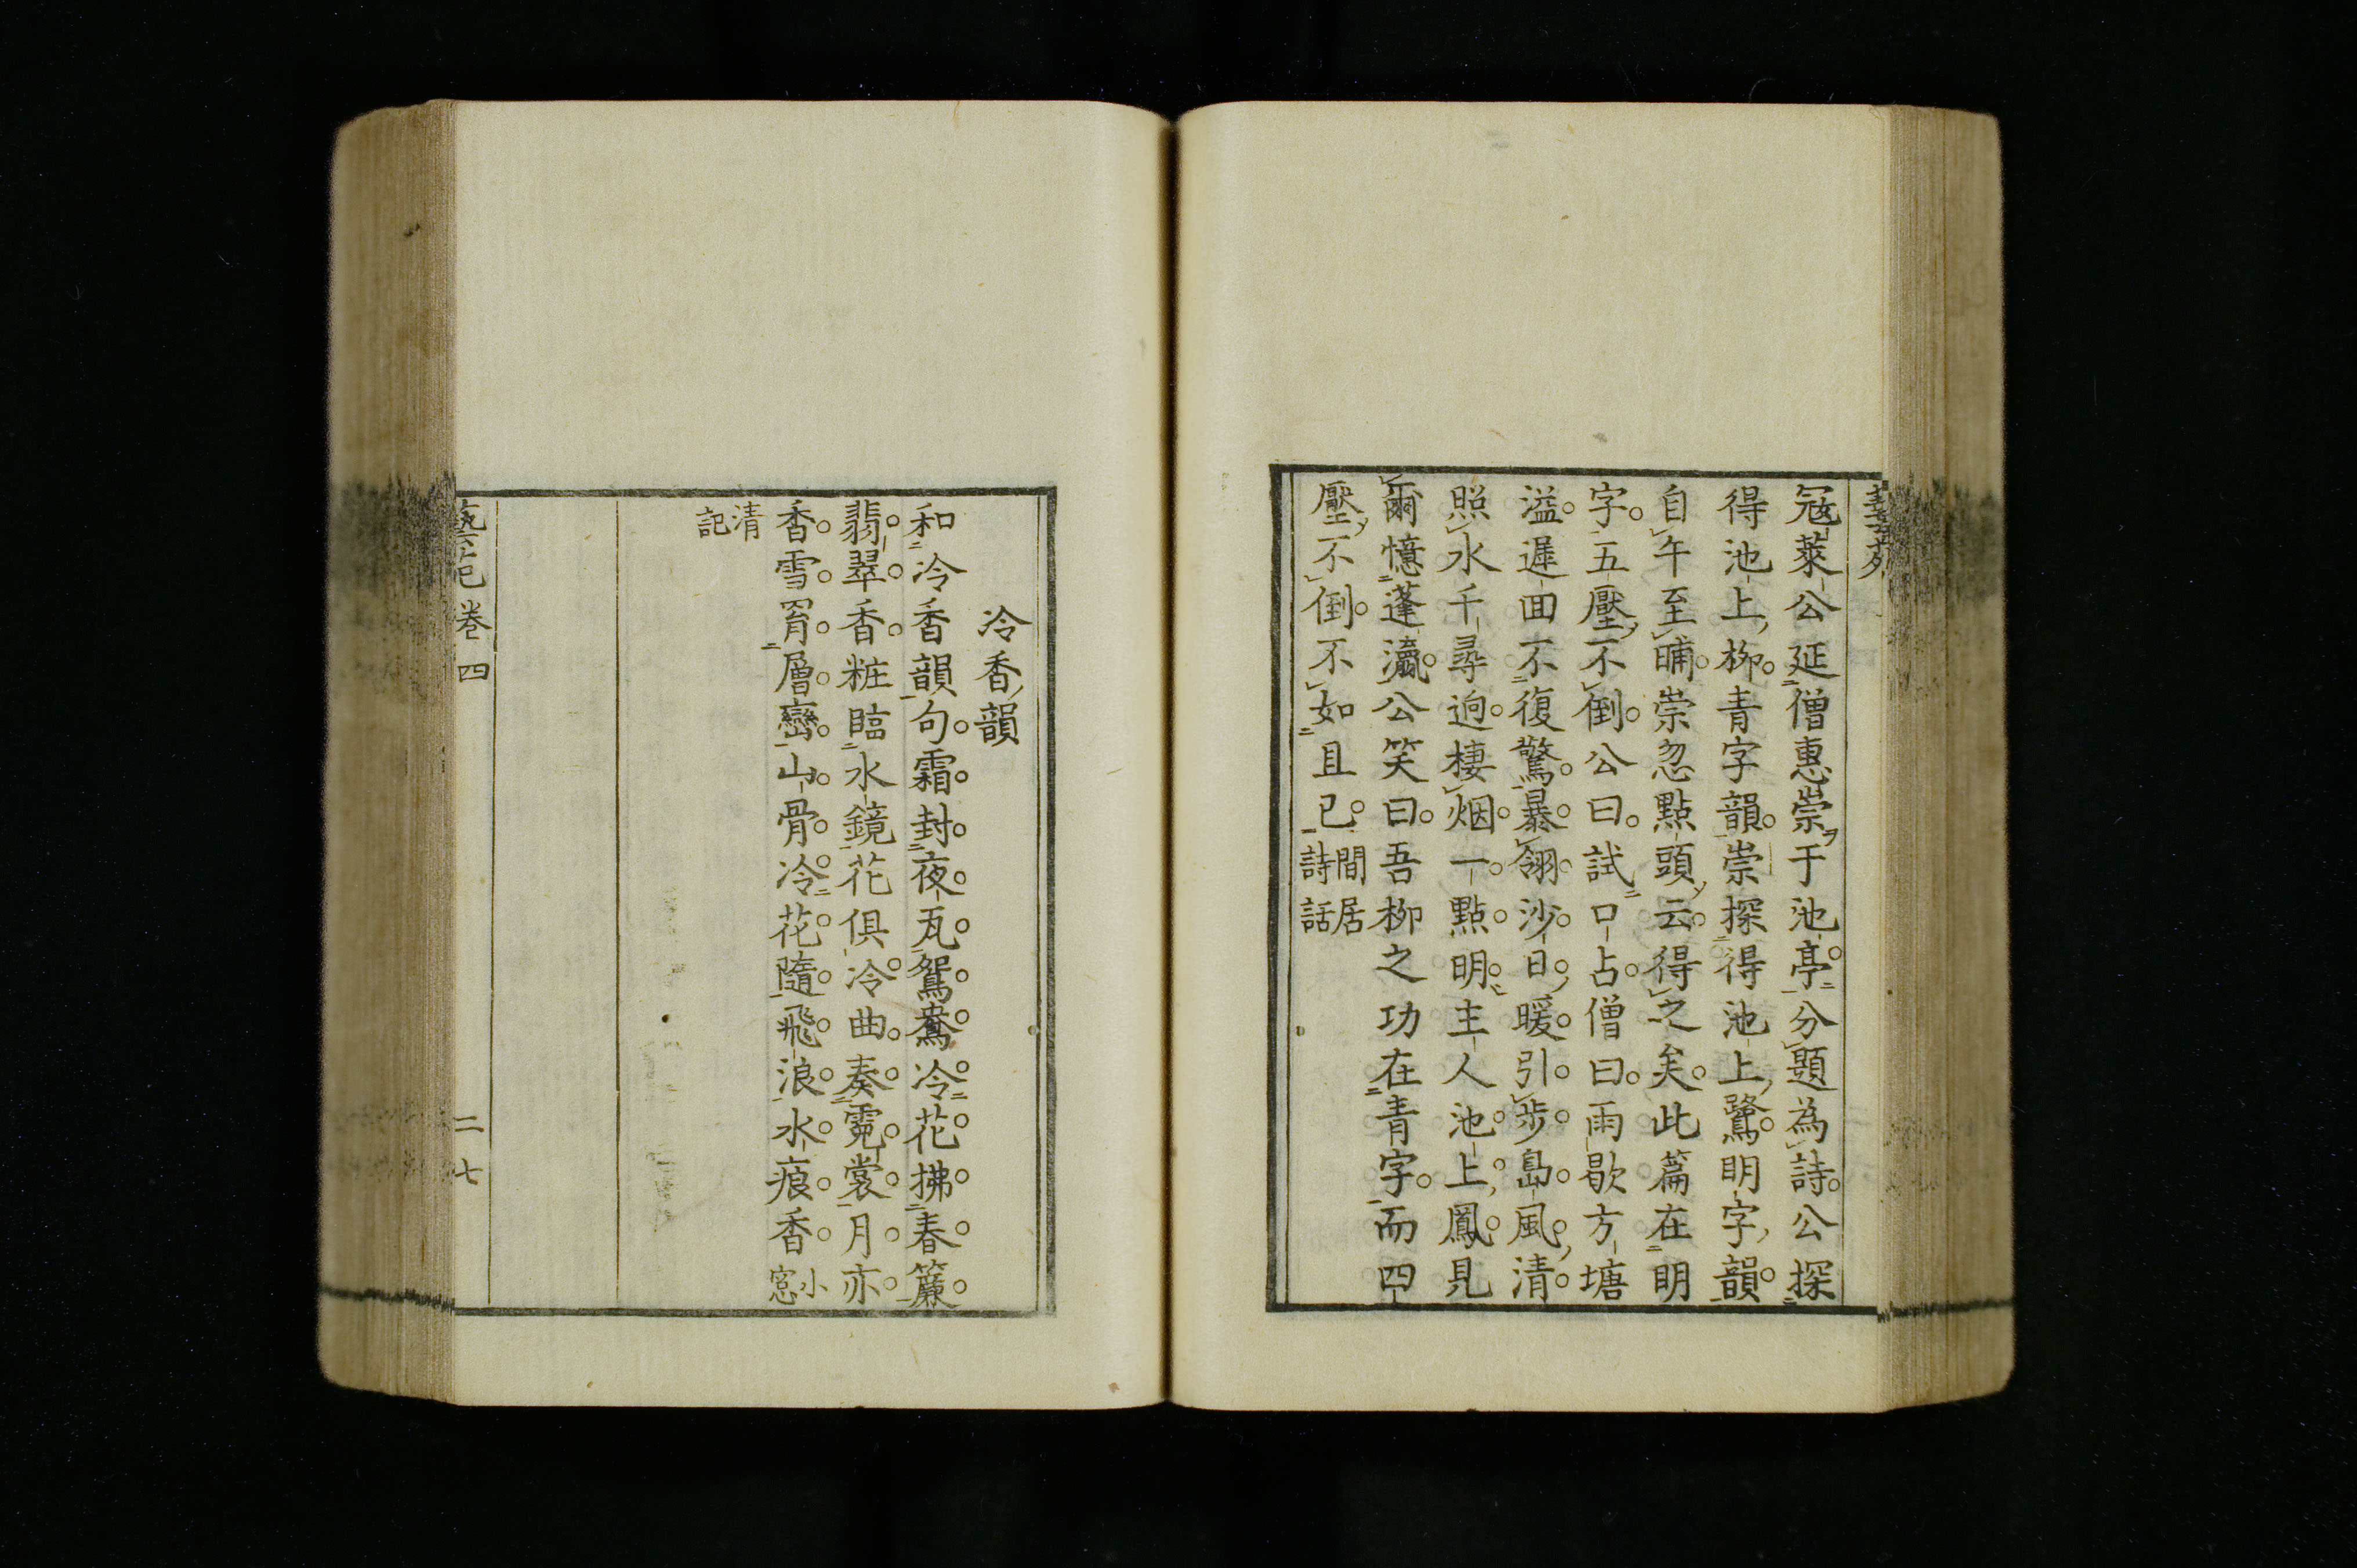 寇萊公延僧惠崇于池亭分題為詩公探
得池上柳青字韻崇探得池上鷺明字韻
自午至晡崇忽點頭云得之矣此篇在明
字五壓不倒公曰試口占僧曰雨歇方塘
溢遲囬不復驚暴翎沙日暖引步島風清
照水千尋逈棲烟一點明主人池上鳳見
爾憶蓬瀛公笑曰吾柳之功在青字而四
壓不倒不如且已間居
詩話
冷香韻
和冷香韻句霜封夜瓦鴛鴦冷花拂春簾
翡翠香粧臨水鏡花俱冷曲奏霓裳月亦
香雪㝛層巒山骨冷花隨飛浪水痕香小
窓
清
記
藝苑 卷四 二七